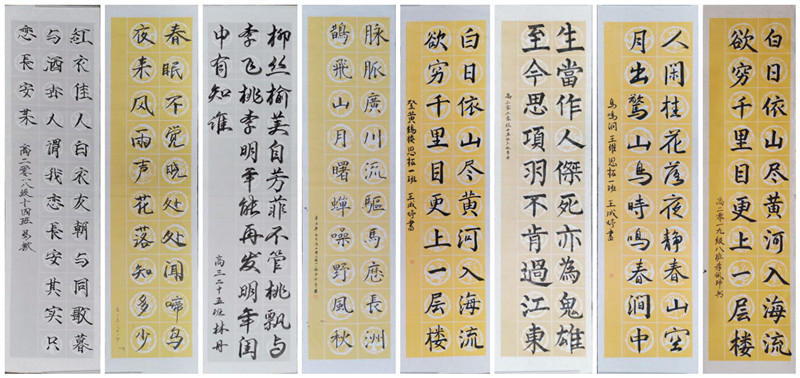 紅衣佳人白衣友朝与同歌暮
与酒世人謂我恋長安其实只
恋長安某
高二零一八级十四班
春眠不觉晓处处闻啼鸟
夜来风雨声花落知多少
柳丝榆荚自芳菲不管桃飘与
李飞桃李明年能再发明年闺
中有知谁
高三二十五班林丹
脉脈廣川流驅馬歷長洲
鵲飛山月曙蟬噪野風秋
白日依山尽黄河入海流
欲穷千里目更上一层楼
登黄鶴楼思拓一班 王成婷書
生當作人傑死亦為鬼雄
至今思項羽不肯過江東
人閑桂花落夜静春山空
月出驚山鳥時鳴春涧中
鳥鳴涧王維思拓一班 王成婷書
白日依山尽黄河入海流
欲穷千里目更上一层楼
高二零一九级八班